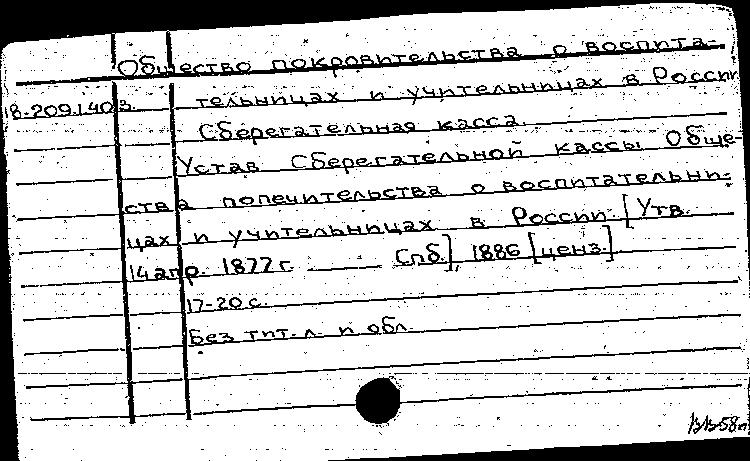 Общество покровительства о воспита-
18-209.140 з. тельницах и учительницах в России
Сберегательная касса.
Устав Сберегательной кассы Обще-
ства попечительства о воспитательни-
цах и учительницах в России. [Утв.
14 апр. 1877 г. —— Спб.], 1886 [ценз.]
17-20 с.
Без тит. л. и обл.